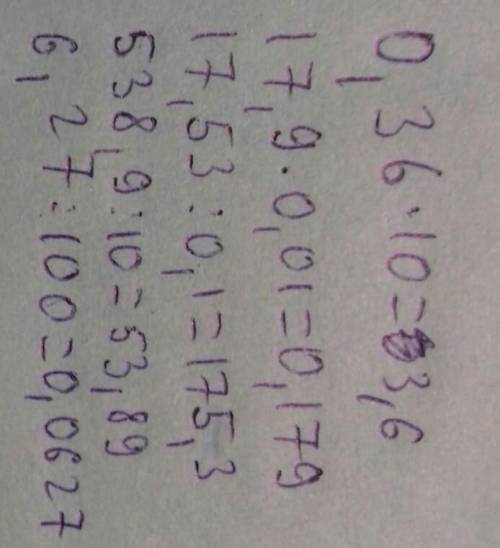 0,36·10=3,6
17,9·0,01=0,179
17,53:0,1=175,3
538,9:10=53,89
6,27:100=0,0627